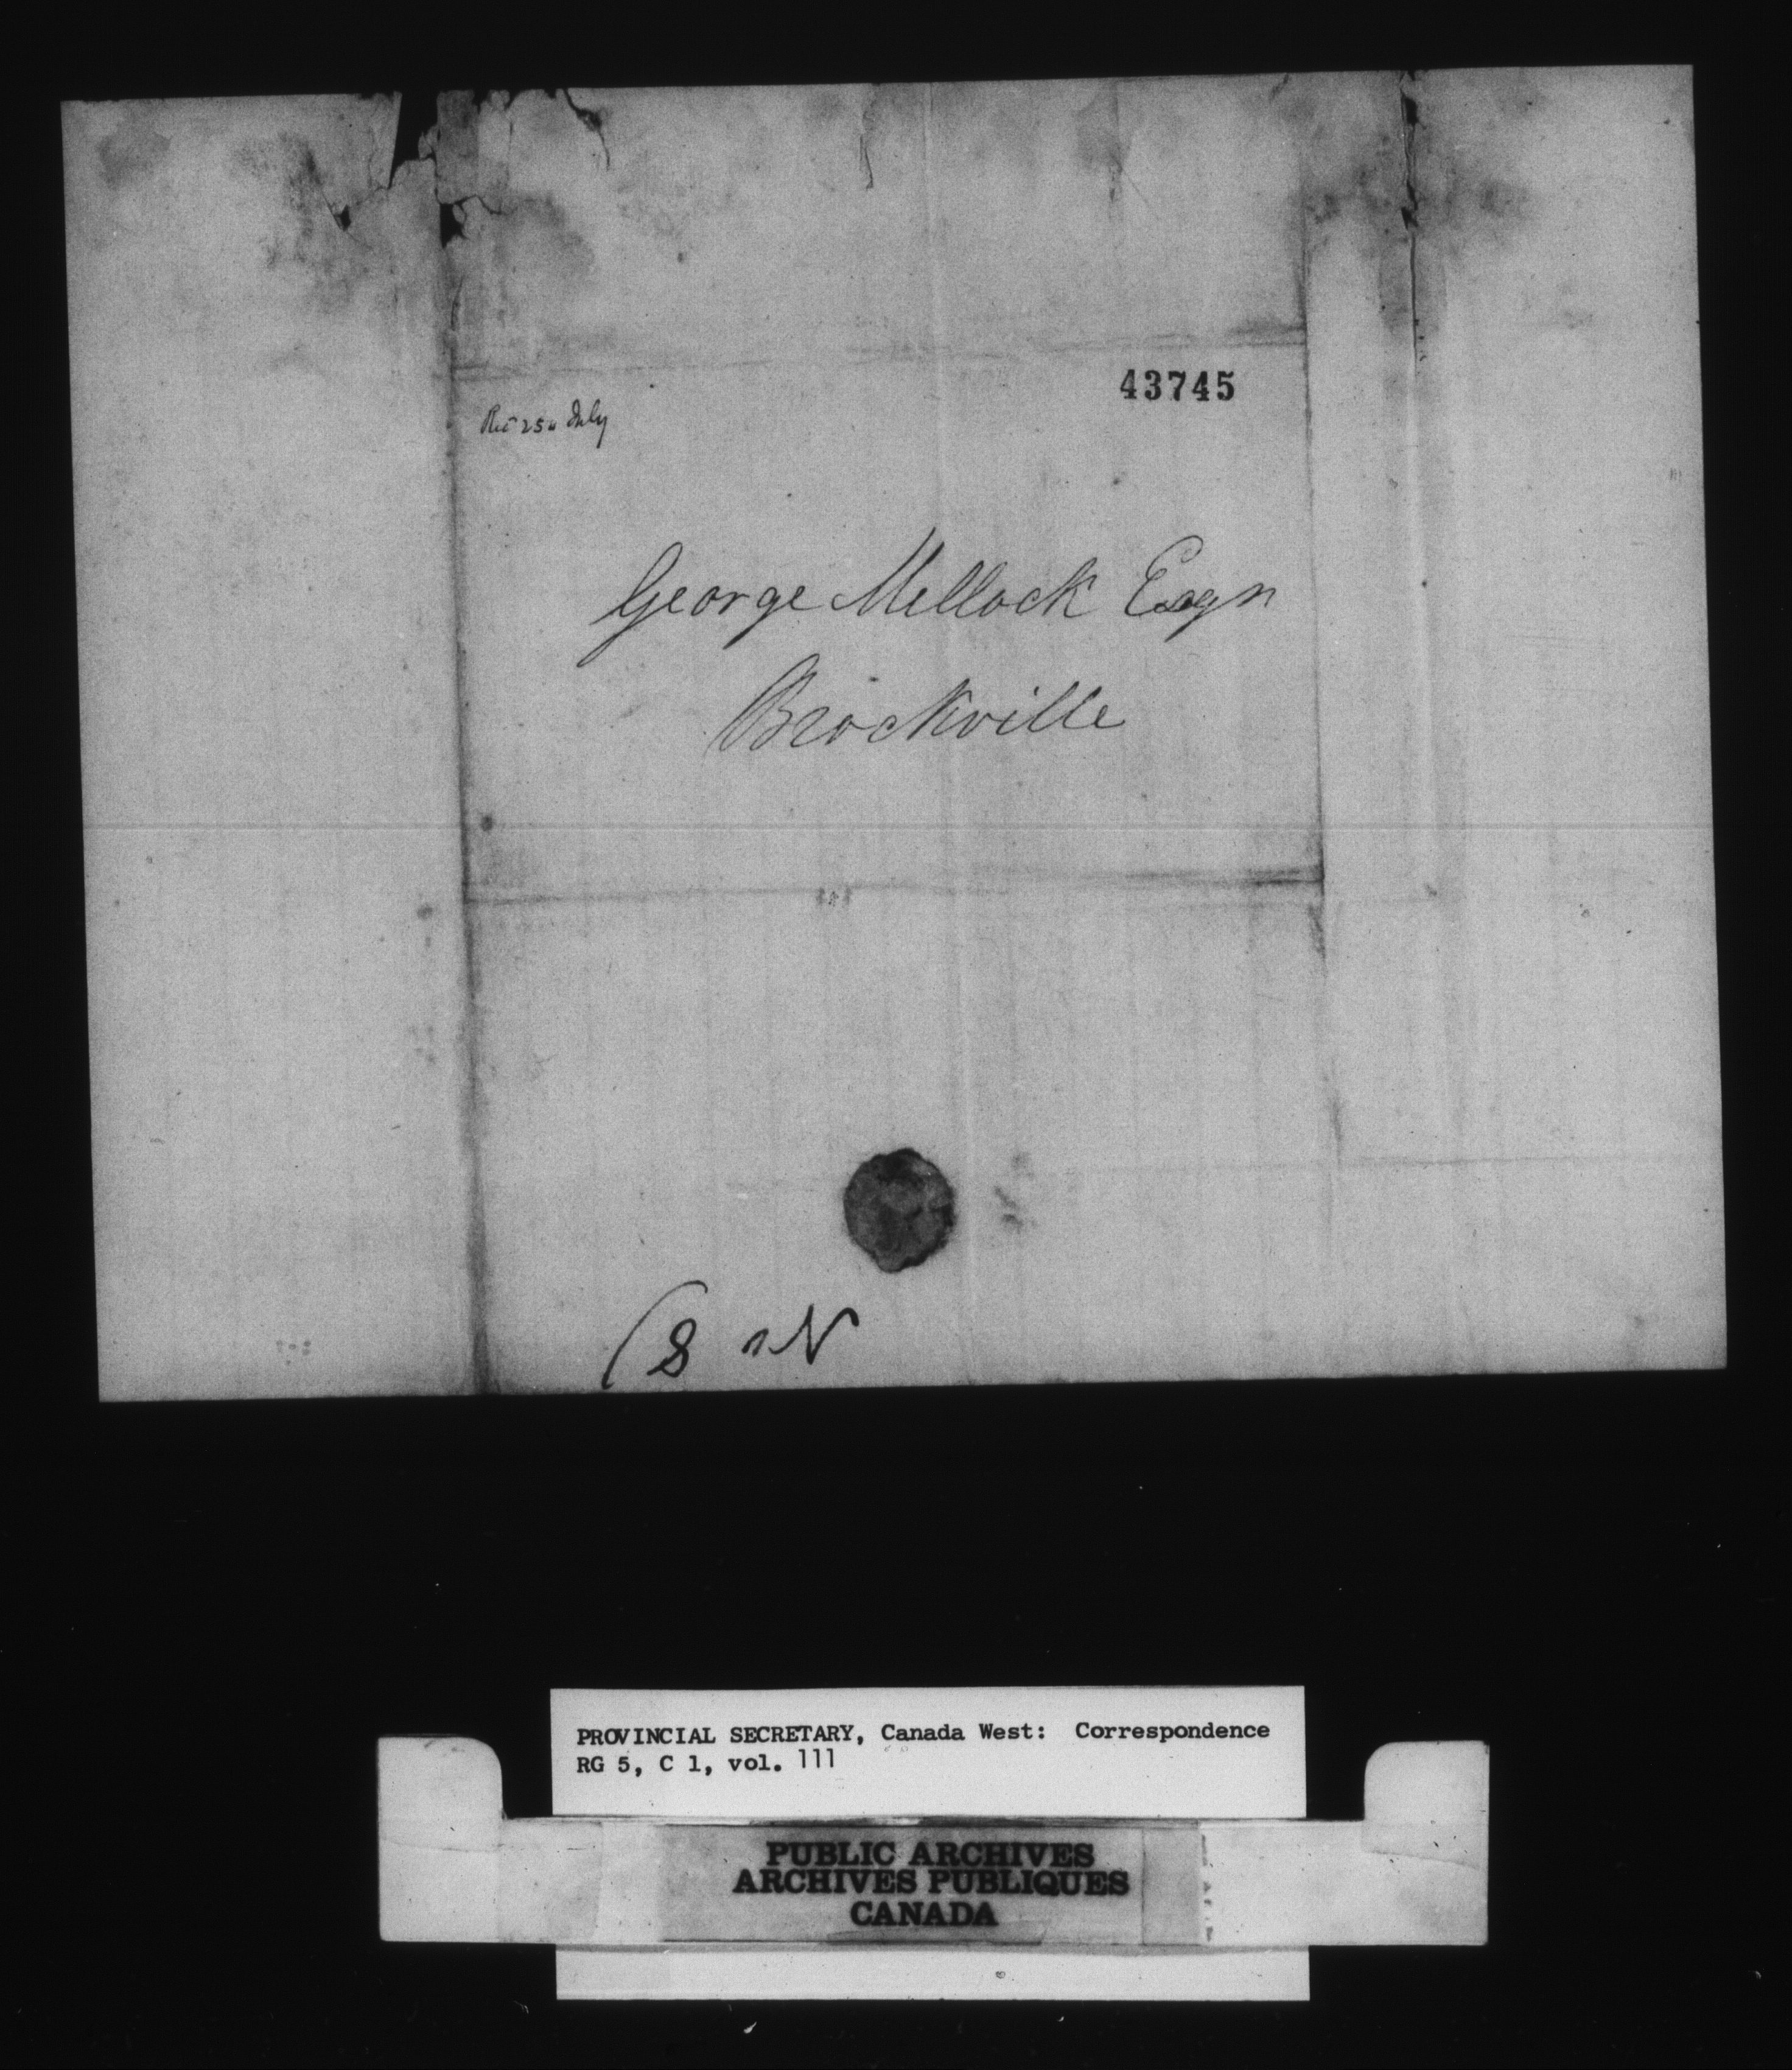 43745
Rec 25 July
George Mellock Esqr
Brockville
PROVINCIAL SECRETARY, Canada West: Correspondence
RG 5, C 1, vol. 111
PUBLIC ARCHIVES
ARCHIVES PUBLIQUES
CANADA